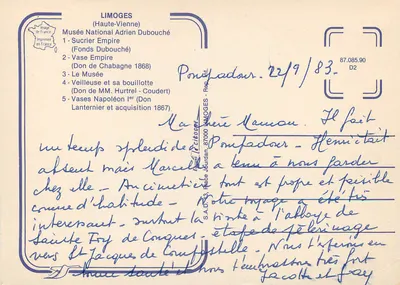 LIMOGES
(Haute-Vienne)
Musée National Adrien Dubouché
1 - Sucrier Empire
(Fonds Dubouché)
2 - Vase Empire
(Don de Chabagne 1868)
3 - Le Musée
4 - Veilleuse et sa bouillotte
(Don de MM. Hurtrel - Coudert)
5 - Vases Napoléon Iᵉʳ (Don
Lanternier et acquisition 1867)
87.085.90
D2
87000 LIMOGES
Pompadour. 22/9/83.
Ma chère Maman. Il fait
un temps splendide à Pompadour - Henri était
absent mais Marcelle a tenu à nous garder
chez elle - Au cimetière tout est propre et paisible
comme d'habitude. Notre voyage a été très
interessant - surtout la visite à l'abbaye de
Sainte Foy de Conques - étape de pélerinage
vers St Jacques de Compostelle - Nous t'espérons en
bonne santé et nous t'embrassons très fort
Jacotte et Guy